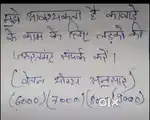 मुझे आवश्यकता है कबाड़े
के काम के लिए लड़को की
जरूरतमंद संपर्क करें ।
(वेतन योग्य अनुसार)
(6000) (7000) (8000) (9000)
OLX